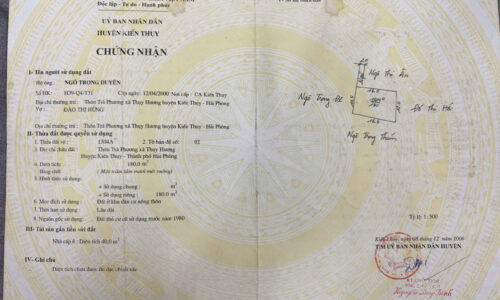 Độc lập - Tự do - Hạnh phúc
UỶ BAN NHÂN DÂN
HUYỆN KIẾN THỤY
CHỨNG NHẬN
I- Tên người sử dụng đất
Hộ ông : NGÔ TRỌNG DUYÊN
Số HK: Cấp ngày : 12/04/2000 Nơi cấp : CA Kiến Thụy
Địa chỉ thường trú : Thôn Trà Phương xã Thụy Hương huyện Kiến Thụy - Hải Phòng
Và ĐÀO THỊ HÙNG
Địa chỉ thường trú : Thôn Trà Phương xã Thụy Hương huyện Kiến Thụy - Hải Phòng
II- Thửa đất được quyền sử dụng
1. Thửa đất số : 1304A 2. Tờ bản đồ số: 02
3. Địa chỉ thửa đất : Thôn Trà Phương xã Thụy Hương
Huyện Kiến Thụy - Thành phố Hải Phòng
4. Diện tích : 180.0 m²
Bằng chữ : (Một trăm tám mươi mét vuông)
5. Hình thức sử dụng:
+ Sử dụng chung : m²
+ Sử dụng riêng : 180.0 m²
6. Mục đích sử dụng : Đất ở khu dân cư nông thôn
7. Thời hạn sử dụng : Lâu dài
8. Nguồn gốc sử dụng : Đất thổ cư cũ sử dụng trước năm 1980
III- Tài sản gắn liền với đất
Nhà cấp 4 : Diện tích 40,0 m²
IV- Ghi chú
Diện tích chưa được đo đạc chính xác
Ngô Thị Ân
Ngô Trọng Đê
Ngô Trọng
Tỷ lệ 1: 500
12 2006
T.M UỶ BAN NHÂN DÂN HUYỆN